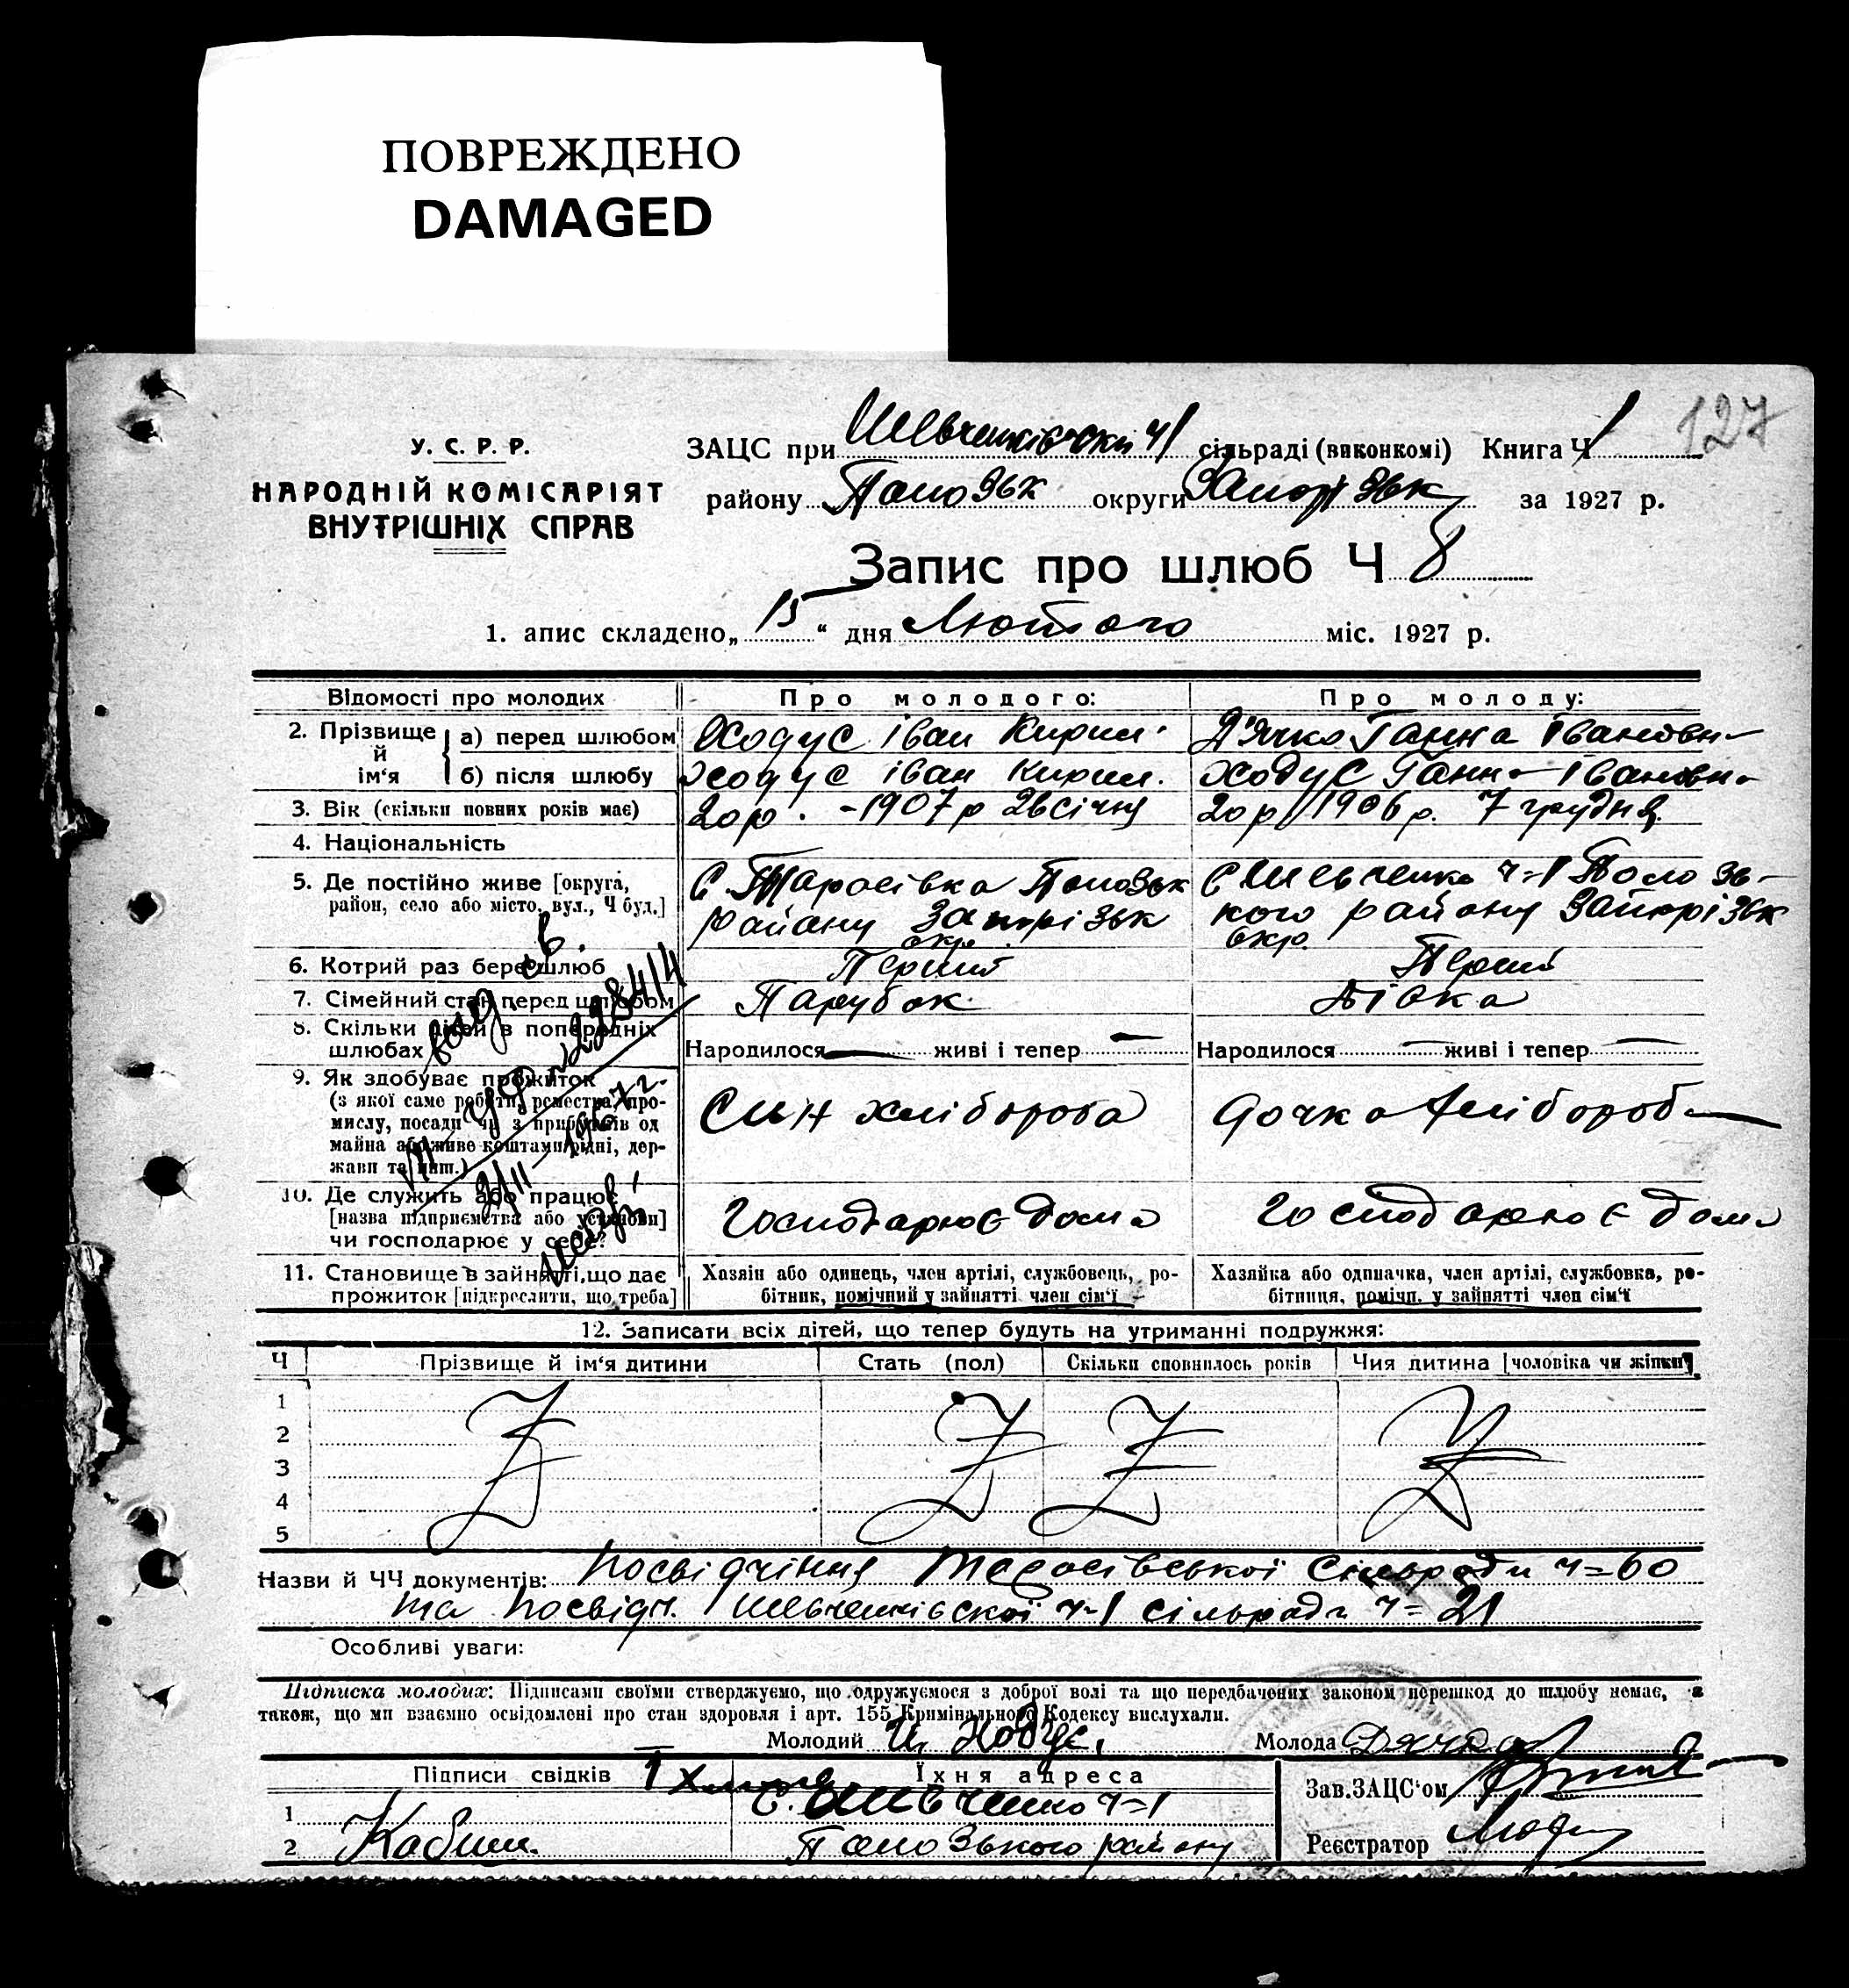 ПОВРЕЖДЕНО
DAMAGED
127
У. С. Р. Р.
НАРОДНІЙ КОМІСАРІЯТ
ВНУТРІШНІХ СПРАВ
ЗАЦС при Шевченківській ч1 сільраді (виконкомі) Книга Ч 1
району округи Запорізьк за 1927 р.
Запис про шлюб Ч 8
1. апис складено „15“ дня Лютого міс. 1927 р.
Відомості про молодих Про молодого: Про молоду:
2. Прізвище й ім‘я
а) перед шлюбом Ходус Іван Кирил. Д'ячко Ганна Івановн
б) після шлюбу Ходус Іван Кирил. Ходус Ганн Івановн
3. Вік (скільки повних років має) 20 р. - 1907 р 26 січня 20 р 1906 р. 7 грудня
4. Національність
5. Де постійно живе [округа, район, село або місто, вул., Ч буд.]
С. Тарасівка району Запорізьк окр.
С Шевченко ч=1 кого району Запорізьк окр.
6. Котрий раз бере шлюб Перший Перший
7. Сімейний стан перед шлюбом Парубок Дівка
8. Скільки дітей в попередніх шлюбах Народилося — живі і тепер — Народилося — живі і тепер —
9. Як здобуває прожиток
(з якої саме роботи, ремества, про-
мислу, посади чи з прибутків од
майна або живе коштами рідні, дер-
жави та инш.)
Син хлібороба дочка хлібороба
10. Де служить або працює
[назва підприємства або установи]
чи господарює у себе?
Господарює дома Господарює дома
11. Становище в зайнятті, що дає
прожиток [підкреслити, що треба]
Хазяїн або одинець, член артілі, службовець, ро-
бітник, помічний у зайнятті член сім‘ї
Хазяйка або одиначка, член артілі, службовка, ро-
бітниця, помічн. у зайнятті член сім‘ї
12. Записати всіх дітей, що тепер будуть на утриманні подружжя:
Ч Прізвище й ім‘я дитини Стать (пол) Скільки сповнилось років Чия дитина [чоловіка чи жінки]
1
2
3
4
5
Назви й ЧЧ документів: Посвідчіння Тарасівської Сільради ч=60
та Посвідч. Шевченківскої ч-1 сільради ч=21
Особливі уваги:
Підписка молодих: Підписами своїми стверджуємо, що одружуємося з доброї волі та що передбачених законом перешкод до шлюбу немає, а
також, що ми взаємно освідомлені про стан здоровля і арт. 155 Кримінального Кодексу вислухали.
Молодий И. Ходус. Молода Дячко
Підписи свідків Їхня адреса Зав. ЗАЦС‘ом
1 С. Шевченко ч=1
2 району Реєстратор